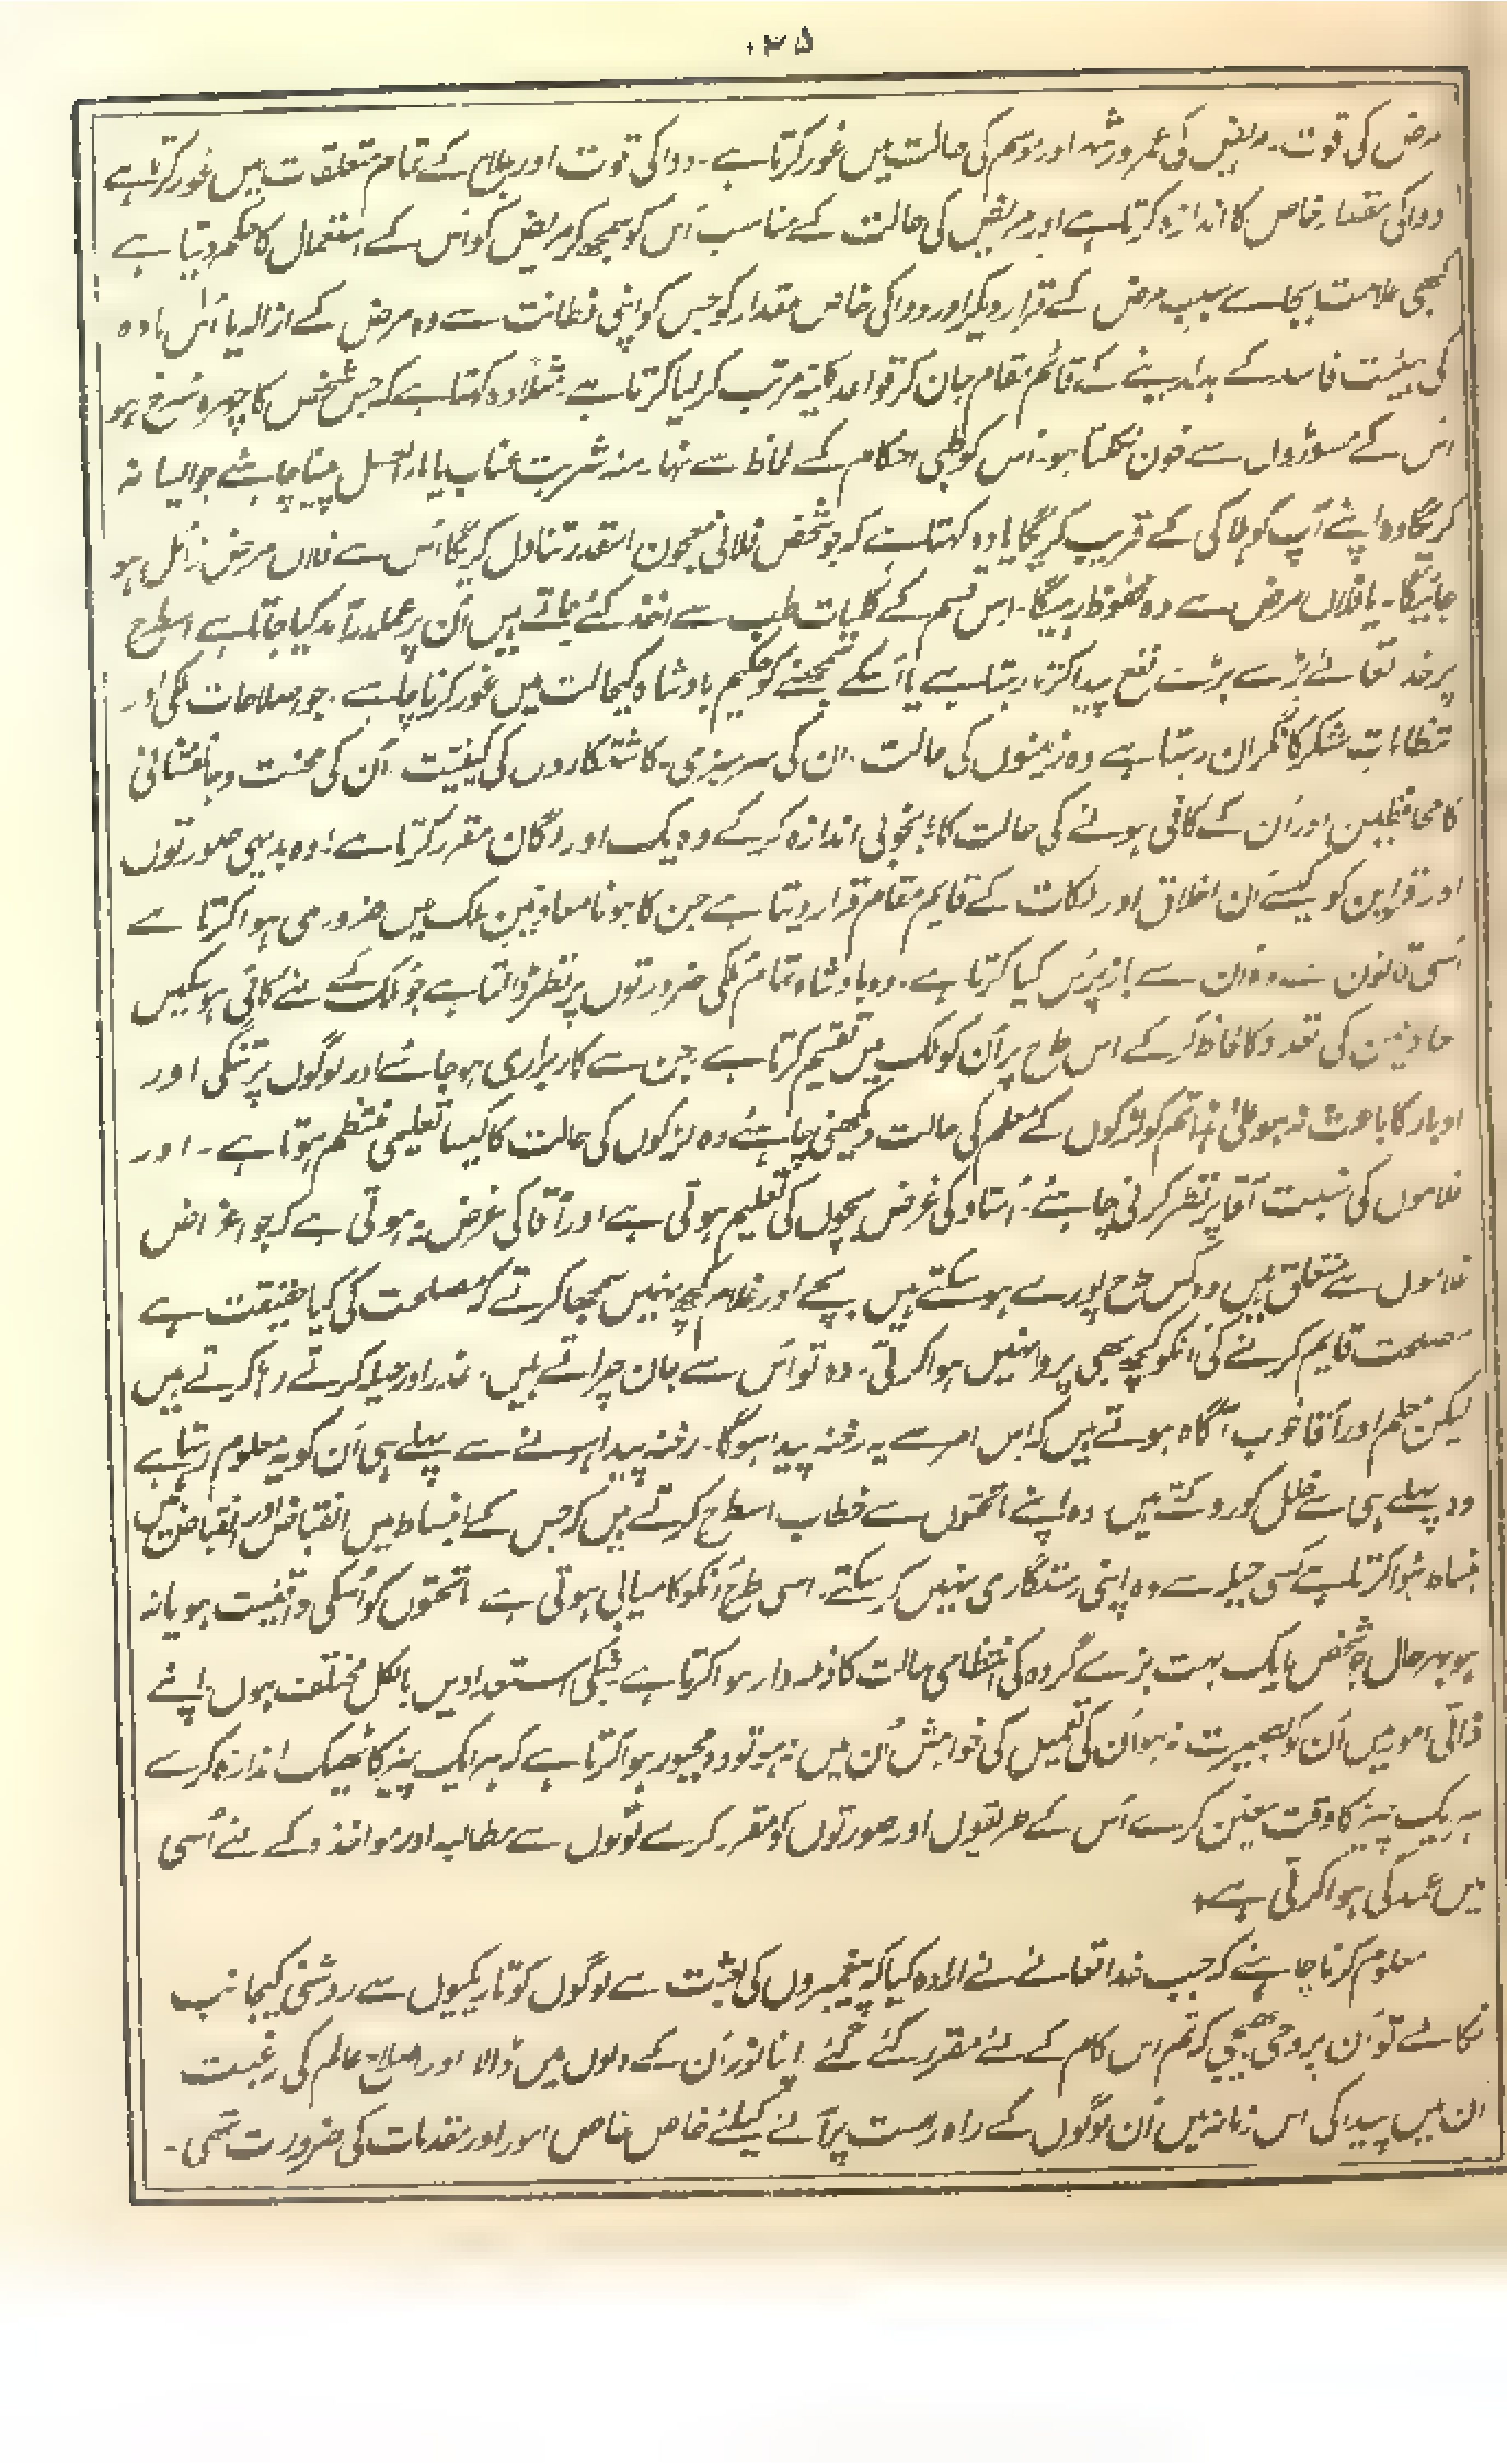 ۰۳۵
مرض کی قوت۔ مریض کی عمر ورشہ اور موسم کی حالت میں غور کرتا ہے۔ دوا کی قوت اور علاج کے تمام متعلقات میں غور کرتا ہے
دوا کی مقدار خاص کا اندازہ کرتا ہے اور مریض کی حالت کے مناسب اُس کو سمجھ کر مریض کو اُس کے استعمال کا حکم دیتا ہے
کبھی علامت بجائے سبب مرض کے قرار دیکر اور دوا کی خاص مقدار کو جس کو اپنی فطانت سے وہ مرض کے ازالہ یا اُس مادہ
کی ہیئت فاسدہ کے بدلدینے کے قائم مقام جان کر قواعد کلیہ مرتب کر لیا کرتا ہے۔ مثلاً وہ کہتا ہے کہ جس شخص کا چہرہ سُرخ ہو
اُس کے مسوڑوں سے خون نکلتا ہو۔ اس کو طبی احکام کے لحاظ سے نہار منہ شربت عناب یا ماء العسل پینا چاہئے جو ایسا نہ
کریگا وہ اپنے آپ کو ہلاکی کے قریب کریگا یا وہ کہتا ہے کہ جو شخص فلانی معجون اسقدر تناول کریگا اُس سے فلاں مرض زائل ہو
جائیگا۔ یا فلاں مرض سے وہ محفوظ رہیگا۔ اس قسم کے کلیات طب سے اخذ کئے جاتے ہیں اُن پر عملدرآمد کیا جاتا ہے اسطرح
پر خدا تعالےٰ بڑے بڑے نفع پیدا کرتا رہتا ہے یا اُسکے سمجھنے کو حکیم بادشاہ کیحالت میں غور کرنا چاہے۔ جو اصلاحات ملکی اور
نتظامات لشکر کا نگران رہتا ہے وہ زمینوں کی حالت۔ ان کی سرسبزی۔ کاشتکاروں کی کیفیت۔ اُن کی محنت و جانفشانی
کا محافظین اور اُن کے کافی ہونے کی حالت کا بخوبی اندازہ کر کے وہ یک اور لگان مقرر کرتا ہے؛ وہ بدیہی صورتوں
اور قراین کو کیسے اُن اخلاق اور ملکات کے قایم مقام قرار دیتا ہے جن کا ہونا معاونین ملک میں ضروری ہوا کرتا ہے
اُسی قانون سے وہ اُن سے بازپُرس کیا کرتا ہے۔ وہ بادشاہ تمام مُلکی ضرورتوں پر نظر ڈالتا ہے جو مُلک کے لئے کافی ہو سکیں
معاونین کی تعداد کا لحاظ کر کے اس طرح پر اُن کو ملک میں تقسیم کرتا ہے۔ جن سے کاربراری ہو جائے اور لوگوں پر تنگی اور
اوبار کا باعث نہ ہو علیٰ ہذا تم کو لڑکوں کے معلم کی حالت دیکھنی چاہئے وہ لڑکوں کی حالت کا کیسا تعلیمی منتظم ہوتا ہے۔ اور
غلاموں کی نسبت آقا پر نظر کرنی چاہئے۔ اُستاد کی غرض بچوں کی تعلیم ہوتی ہے اور آقا کی غرض یہ ہوتی ہے کہ جو اغراض
غلاموں سے متعلق ہیں وہ کس طرح پورے ہو سکتے ہیں بچے اور غلام کچھ نہیں سمجھا کرتے کہ مصلحت کی کیا حقیقت ہے
مصلحت قایم کرنے کی انکو کچھ بھی پروا نہیں ہوا کرتی۔ وہ تو اُس سے جان چراتے ہیں۔ عذر اور حیلہ کرتے رہا کرتے ہیں
لیکن معلم اور آقا خوب آگاہ ہوتے ہیں کہ اِس امر سے یہ رخنہ پیدا ہوگا۔ رخنہ پیدا ہونے سے پہلے ہی اُن کو یہ معلوم رہتا ہے
وہ پہلے ہی سے خلل کو روکتے ہیں وہ اپنے ماتحتوں سے خطاب اسطرح کرتے ہیں کہ جس کے انبساط میں انقباض اور انقباض میں
انبساط ہُوا کرتا ہے کسی حیلہ سے وہ اپنی رستگاری نہیں کر سکتے۔ اسی طرح اُنکو کامیابی ہوتی ہے ماتحتوں کو اُسکی واقفیت ہو یا نہ
ہو بہرحال جو شخص ایک بہت بڑے گروہ کی انتظامی حالت کا ذمہ دار ہوا کرتا ہے جنکی استعدادیں بالکل مختلف ہوں اپنے
ذاتی امور میں اُن کو بصیرت نہ ہو اُن کی تعمیل کی خواہش اُن میں نہ ہو تو وہ مجبور ہوا کرتا ہے کہ ہر ایک چیز کا ٹھیک اندازہ کرے
ہر یک چیز کا وقت معین کرے اُس کے طریقوں اور صورتوں کو مقرر کرے لوگوں سے مطالبہ اور مواخذہ کے لئے اُسی
میں عمدگی ہوا کرتی ہے
معلوم کرنا چاہئے کہ جب خدا تعالےٰ نے ارادہ کیا کہ پیغمبروں کی بعثت سے لوگوں کو تاریکیوں سے روشنی کیجانب
نکالے تو اُن پر وحی بھیجی کہ تم اس کام کے لئے مقرر کئے گئے اپنا نور اُن کے دلوں میں ڈالا اور اصلاح عالم کی رغبت
ان میں پیدا کی اس زمانہ میں اُن لوگوں کے راہ راست پر آنے کیلئے خاص خاص امور اور مقدمات کی ضرورت تھی۔